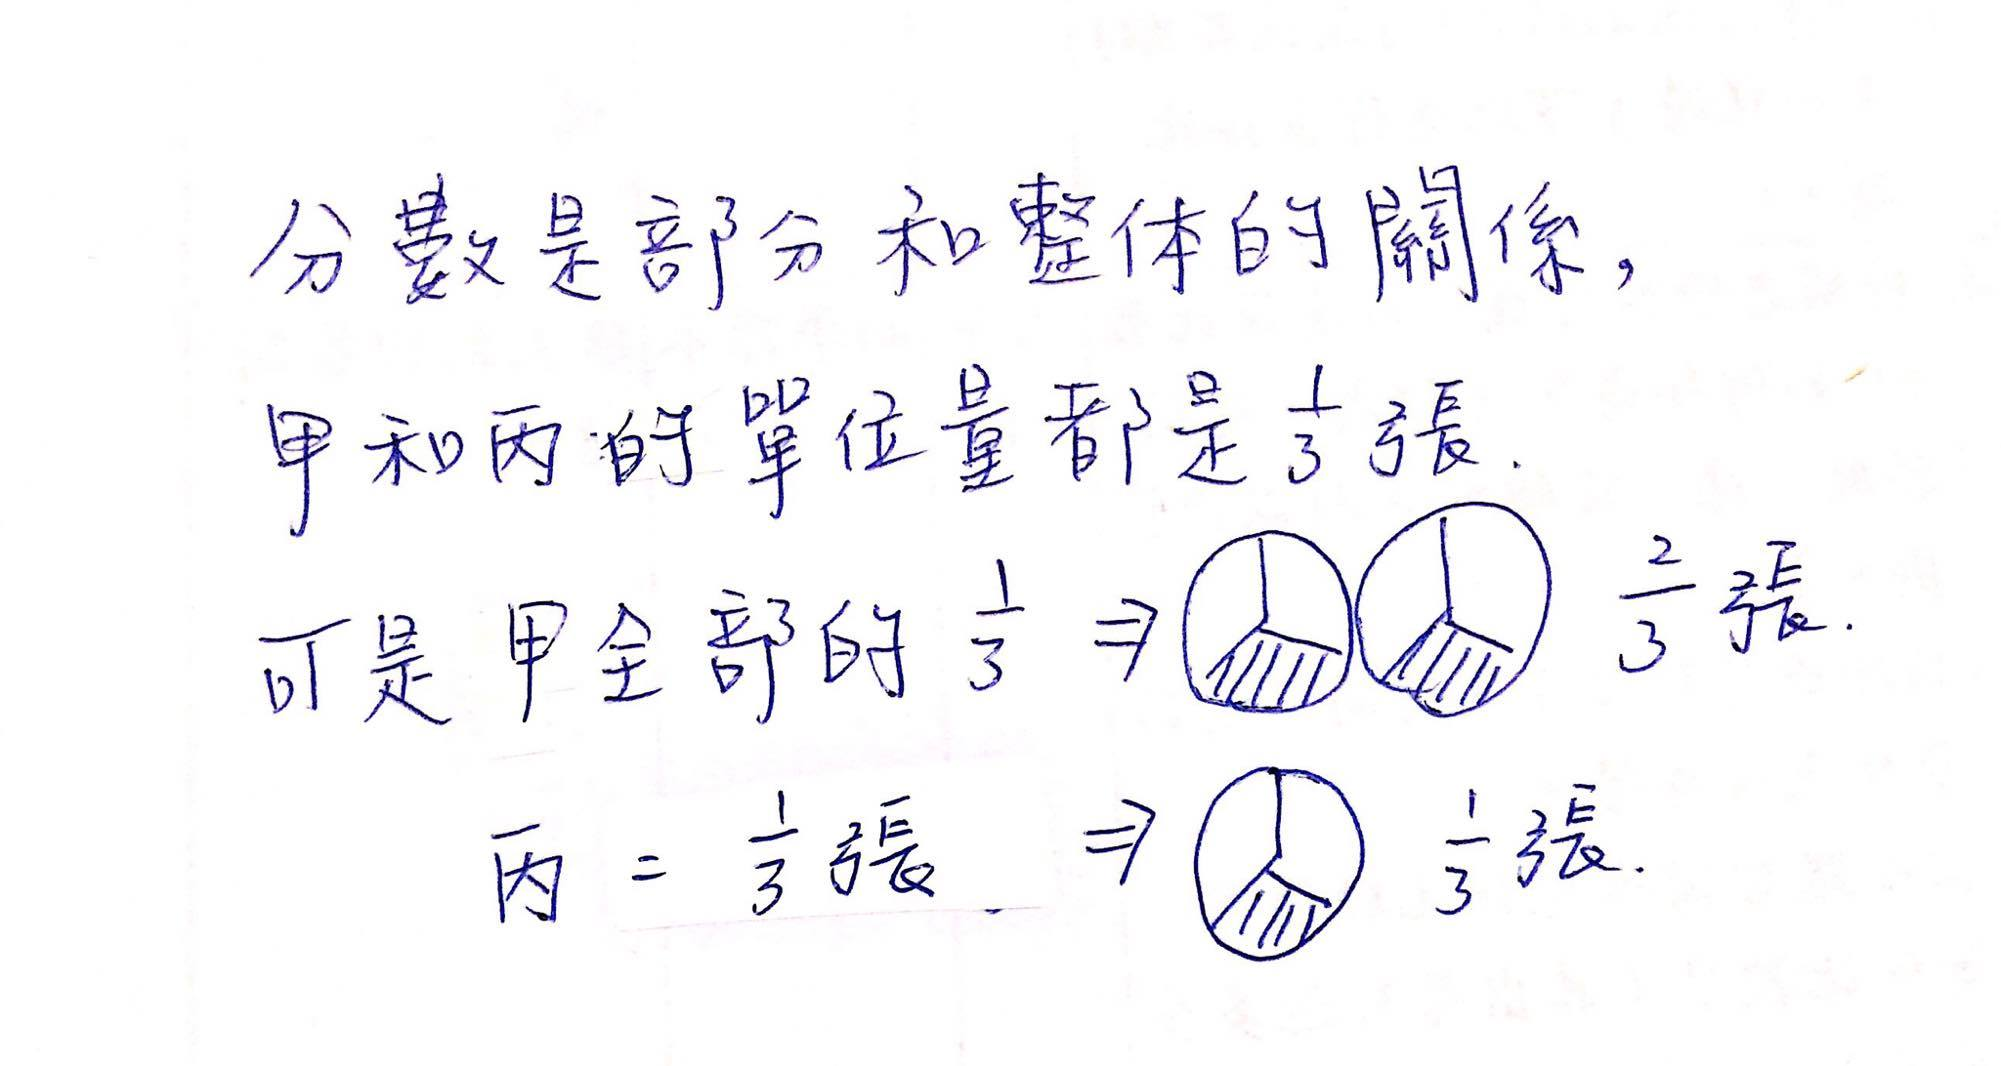 分數是部分和整体的關係,
甲和丙的單位量都是 1/3 張.
可是甲全部的 1/3 ⇒ 2/3 張.
丙 = 1/3 張 ⇒ 1/3 張.